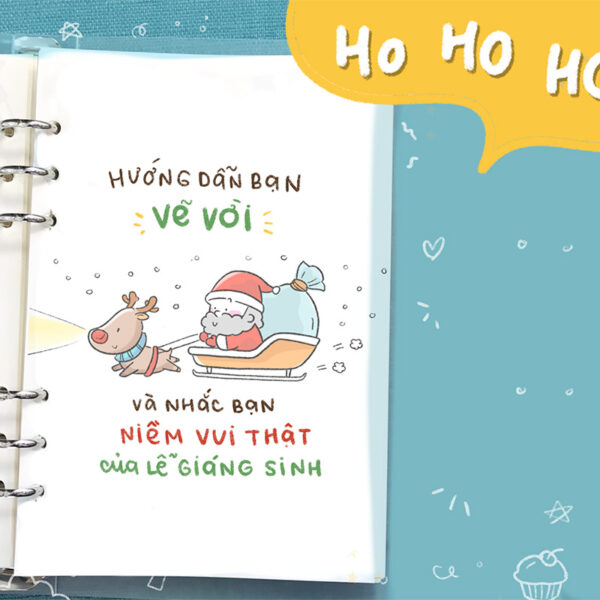 HO HO HO
HƯỚNG DẪN BẠN
VẼ VỜI
VÀ NHẮC BẠN
NIỀM VUI THẬT
CỦA LỄ GIÁNG SINH